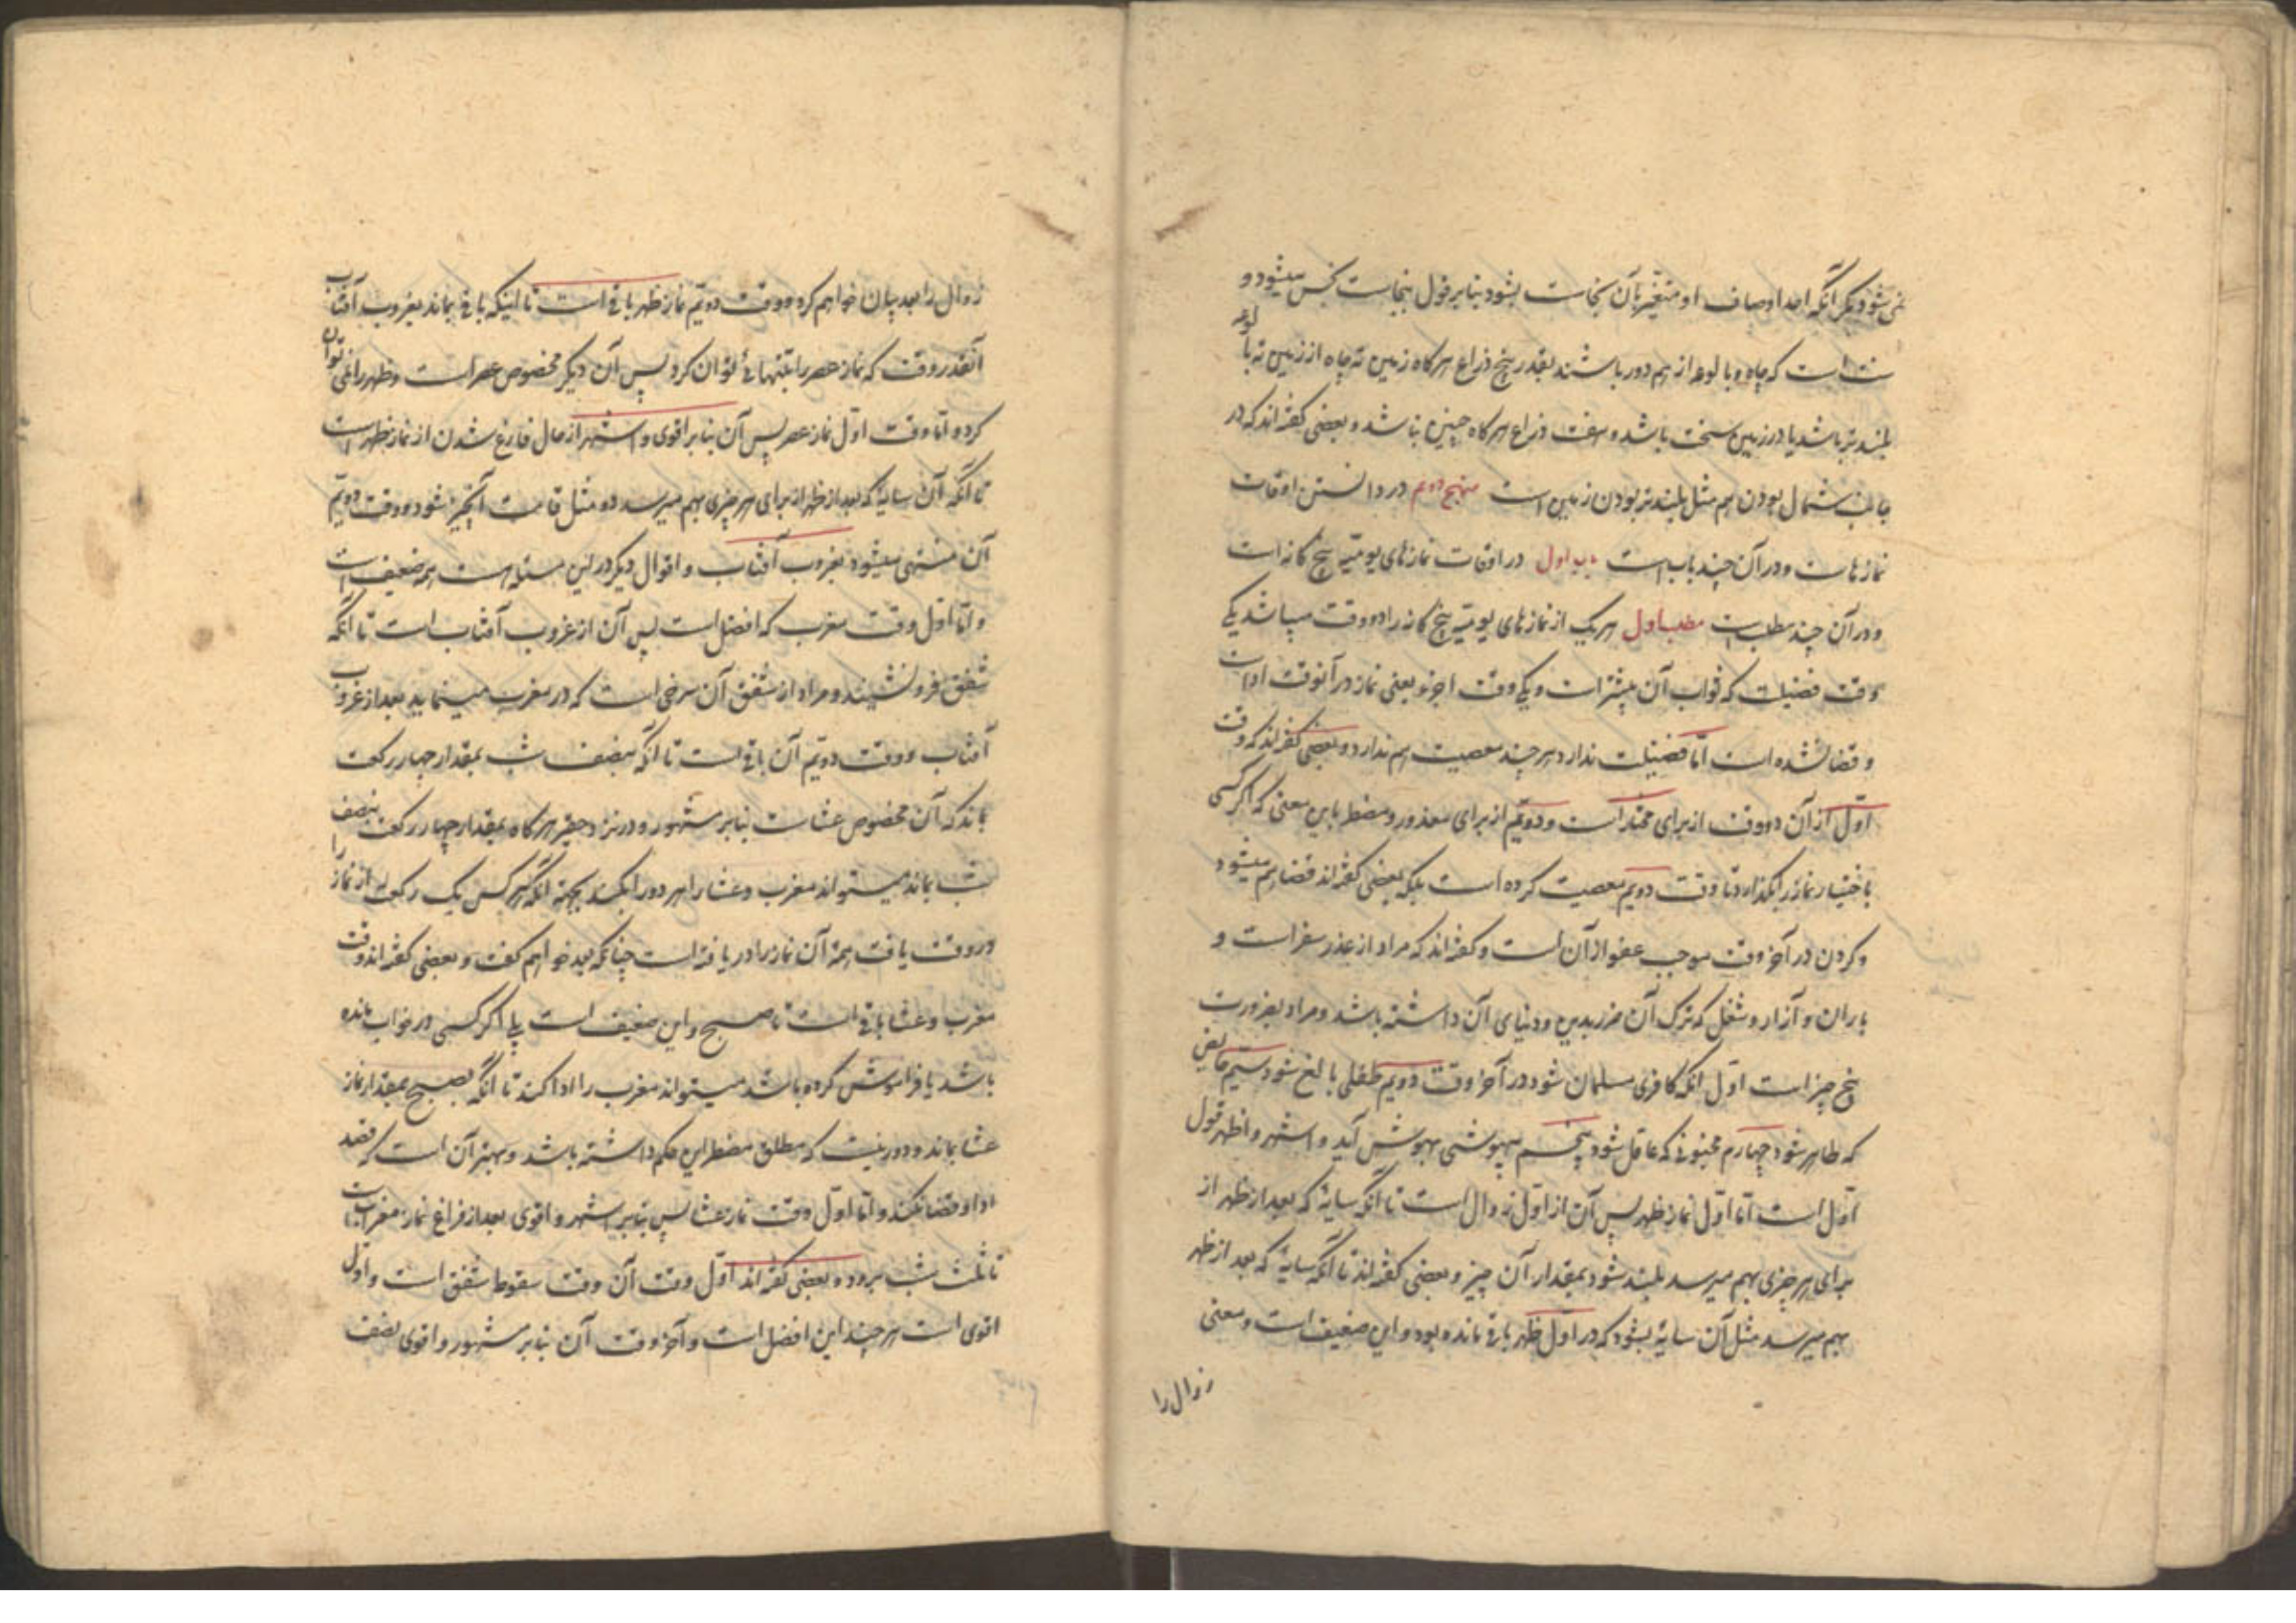 نمی شود دیگر آنکه احد اوصاف او متغیر بآن نجاست بشود بنا بر قول نجاست نجس میشود و
سنت است که چاه و بالوعه از هم دور باشند بقدر پنج ذراع هر گاه زمین ته چاه از زمین ته بالوعه
بلند تر باشد یا در زمین سخت باشد و هفت ذراع هر گاه چنین نباشد و بعضی گفته اند که در
جانب شمال بودن هم مثل بلند تر بودن زمین است منهج دوم در دانستن اوقات
نمازهاست و در آن چند باب است باب اول در اوقات نمازهای یومیه پنج کانه است
و در آن چند مطلب است مطلب اول هر یک از نمازهای یومیه پنج کانه را دو وقت میباشد یکی
وقت فضیلت که ثواب آن بیشتر است و یکی وقت اجزا یعنی نماز در آنوقت ادا است
و قضا نشده است اما فضیلت ندارد هر چند معصیت هم ندارد و بعضی گفته اند که وقت
اول از آن دو وقت از برای مختار است و دویم از برای معذور و مضطر باین معنی که اگر کسی
باختیار نماز را بگذارد تا وقت دویم معصیت کرده است بلکه بعضی گفته اند قضا هم میشود
و کردن در آخر وقت موجب عفو از آن است و گفته اند که مراد از عذر سفر است و
باران و آزار و شغلی که ترک آن ضرر بدین و دنیای آن داشته باشد و مراد بضرورت
پنج چیز است اول آنکه کافری مسلمان شود در آخر وقت دویم طفلی بالغ شود سیم حایض
که طاهر شود چهارم مجنونی که عاقل شود پنجم بیهوشی بهوش آید و اشهر و اظهر قول
اول است اما اول نماز ظهر پس آن از اول زوال است تا آنکه سایهٔ که بعد از ظهر از
برای هر چیزی بهم میرسد بلند شود بمقدار آن چیز و بعضی گفته اند تا آنکه سایهٔ که بعد از ظهر
بهم میرسد مثل آن سایهٔ بشود که در اول ظهر باقی مانده بود و این ضعیف است و معنی
زوال را
زوال را بعد بیان خواهم کرد و وقت دویم نماز ظهر باقی است تا اینکه باقی بماند بغروب آفتاب
آنقدر وقت که نماز عصر را بتنهائی توان کرد پس آن دیگر مخصوص عصر است و ظهر را نمی توان
کرد و اما وقت اول نماز عصر پس آن بنا بر اقوی و اشهر از حال فارغ شدن از نماز ظهر است
تا آنکه آن سایهٔ که بعد از ظهر از برای هر چیزی بهم میرسد دو مثل قامت آنچیز شود و وقت دویم
آن منتهی میشود بغروب آفتاب و اقوال دیگر در این مسئله هست همه ضعیف است
و اما اول وقت مغرب که افضل است پس آن از غروب آفتاب است تا آنکه
شفق فرو نشیند و مراد از شفق آن سرخی است که در مغرب مینماید بعد از غروب
آفتاب و وقت دویم آن باقی است تا آنکه بنصف شب بمقدار چهار رکعت
بماند که آن مخصوص عشاست بنا بر مشهور و در نزد حقیر هر گاه بمقدار چهار رکعت بنصف
شب بماند میتواند مغرب و عشا را هر دو را بکند بجهة آنکه هر کس یک رکعت از نماز را
در وقت یافت همهٔ آن نماز را دریافته است چنانکه بعد خواهم گفت و بعضی گفته اند وقت
مغرب و عشا باقی است تا صبح و این ضعیف است بلی اگر کسی در خواب مانده
باشد یا فراموش کرده باشد میتواند مغرب را ادا کند تا آنکه بصبح بمقدار نماز
عشا بماند و دور نیست که مطلق مضطر این حکم داشته باشد و بهتر آن است که قصد
ادا و قضا نکند و اما اول وقت نماز عشا پس بنا بر اشهر و اقوی بعد از فراغ نماز مغرب است
تا ثلث شب برود و بعضی گفته اند اول وقت آن وقت سقوط شفق است و اول
اقوی است هر چند این افضل است و آخر وقت آن بنا بر مشهور و اقوی نصف